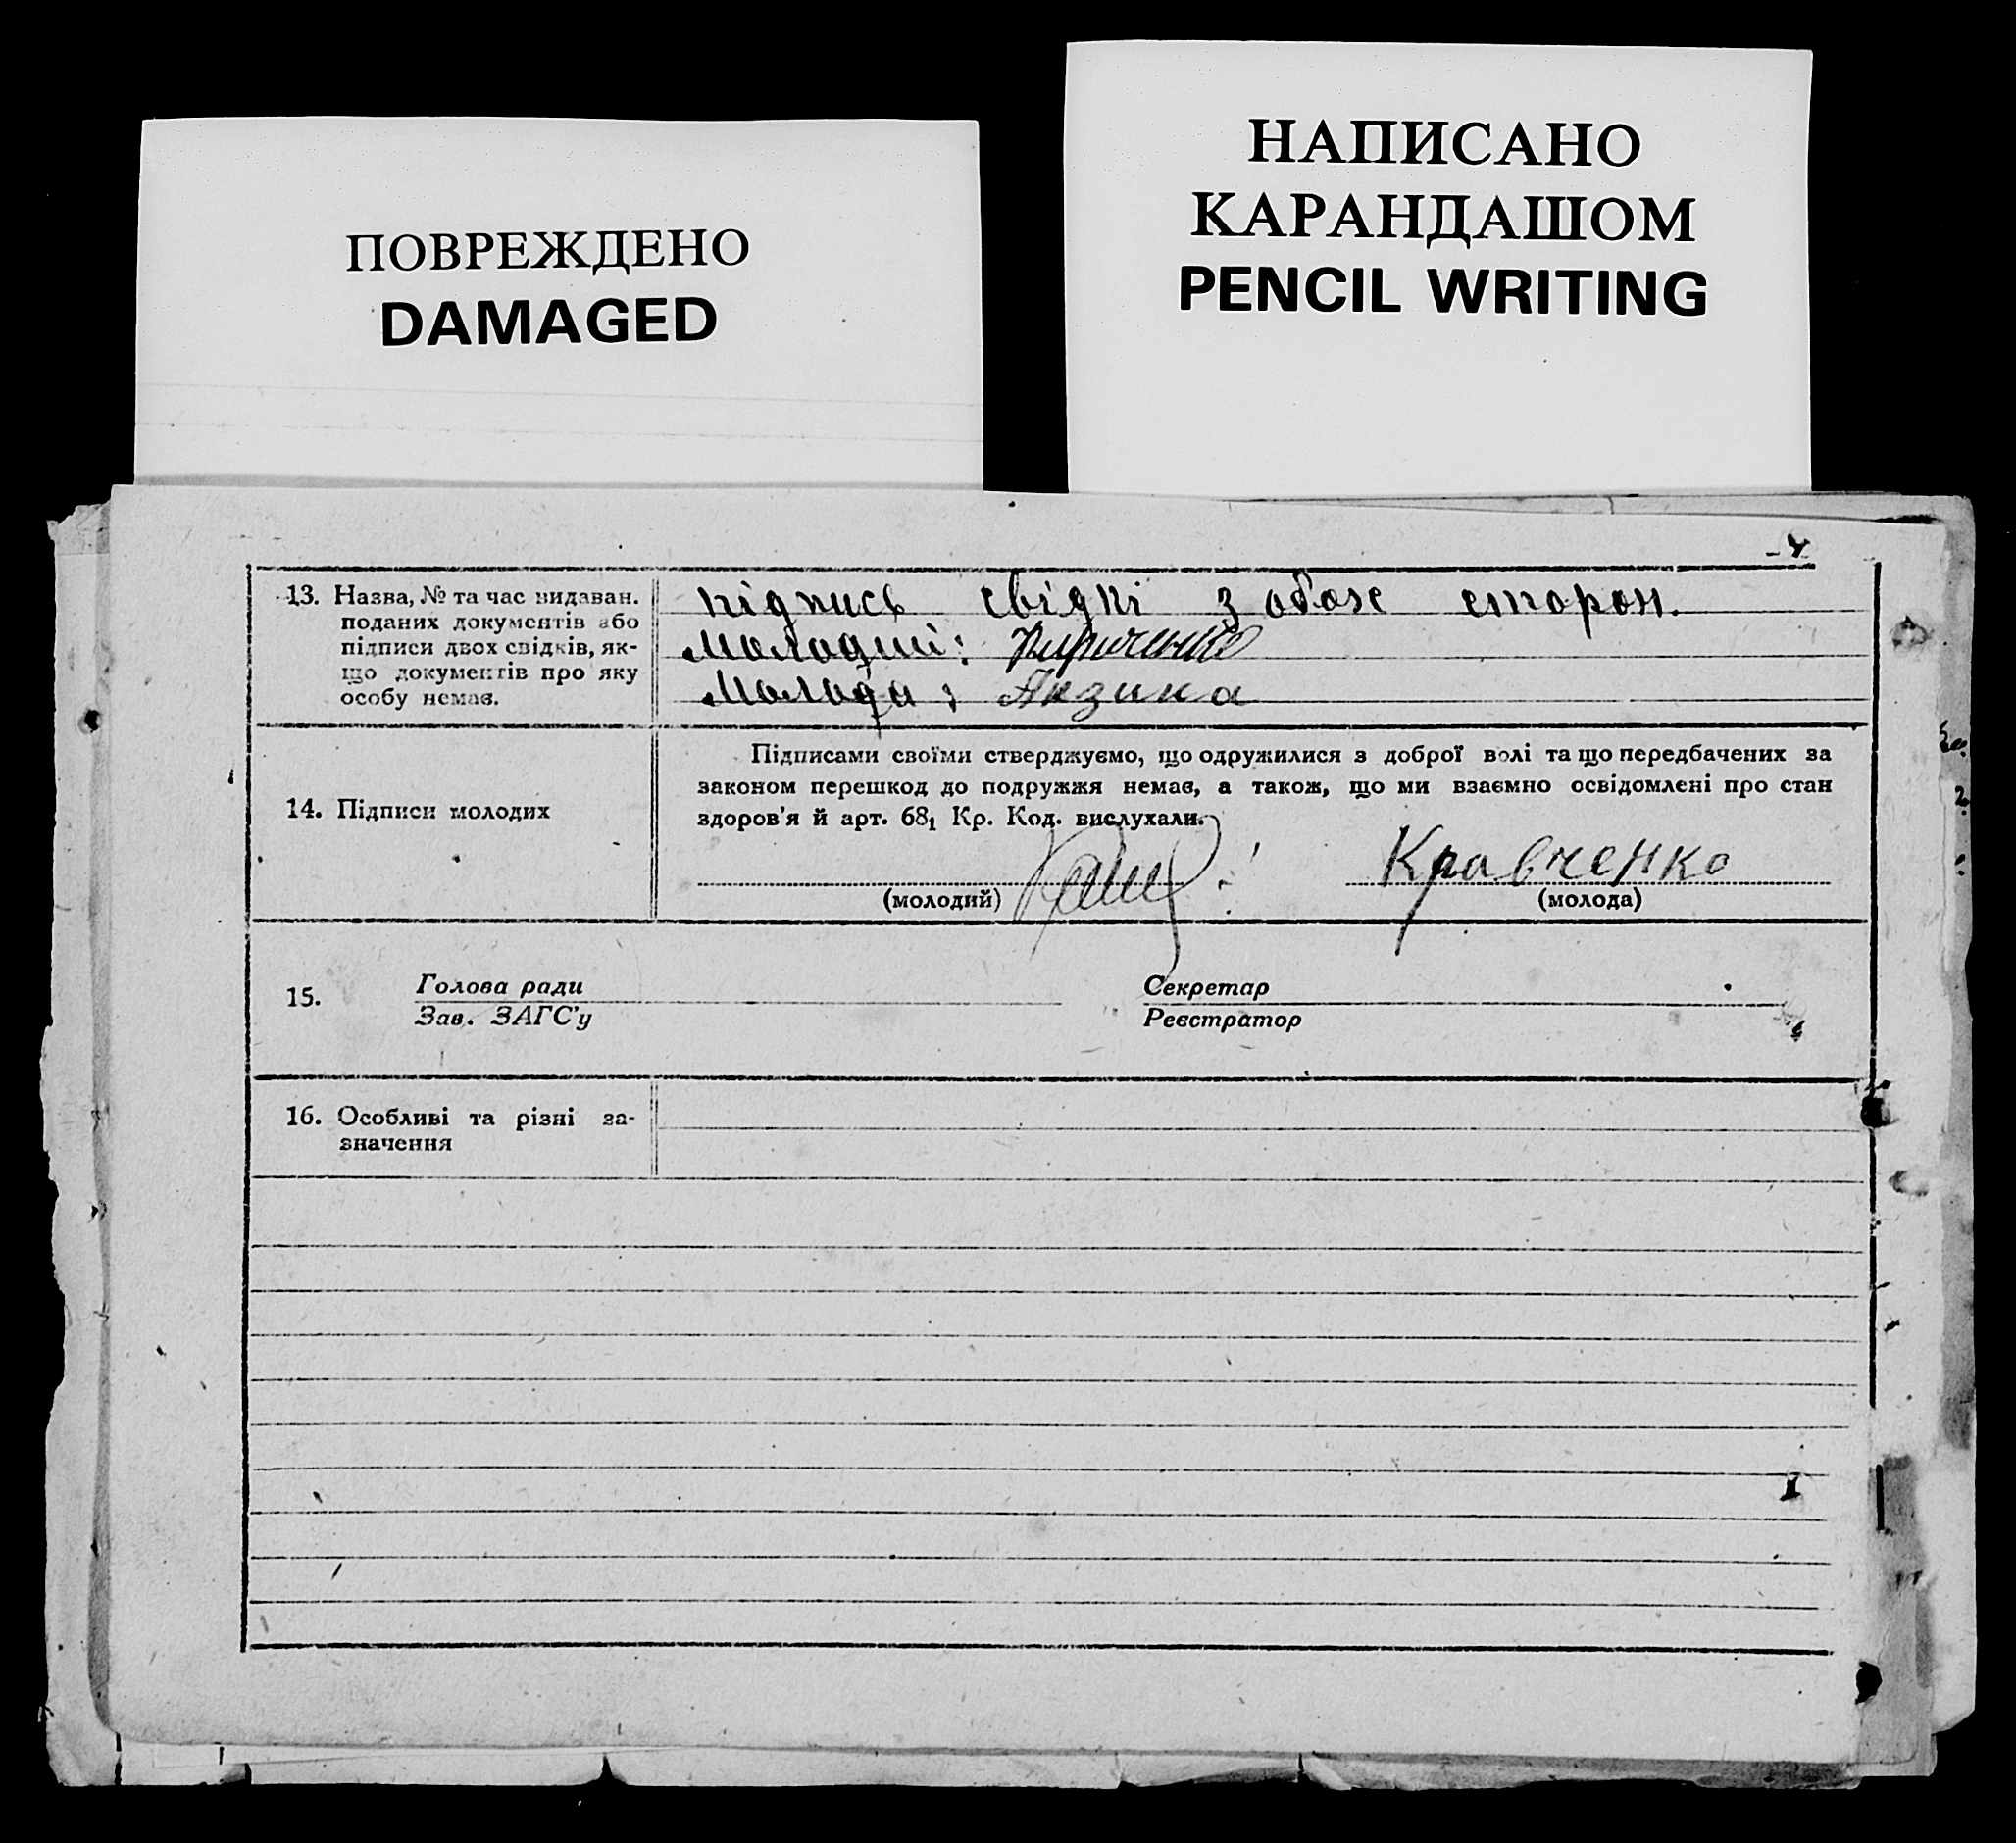 ПОВРЕЖДЕНО
DAMAGED
НАПИСАНО
КАРАНДАШОМ
PENCIL WRITING
13. Назва, № та час видаван.
поданих документів або
підписи двох свідків, як-
що документів про яку
особу немає.
підпись свідкі з обох сторон.
Молодий: Кириченко
Молода:
14. Підписи молодих
Підписами своїми стверджуємо, що одружилися з доброї волі та що передбачених за
законом перешкод до подружжя немає, а також, що ми взаємно освідомлені про стан
здоров'я й арт. 68₁ Кр. Код. вислухали.
Кравченко
(молодий)
(молода)
15.
Голова ради
Зав. ЗАГС'у
Секретар
Реєстратор
16. Особливі та різні за-
значення